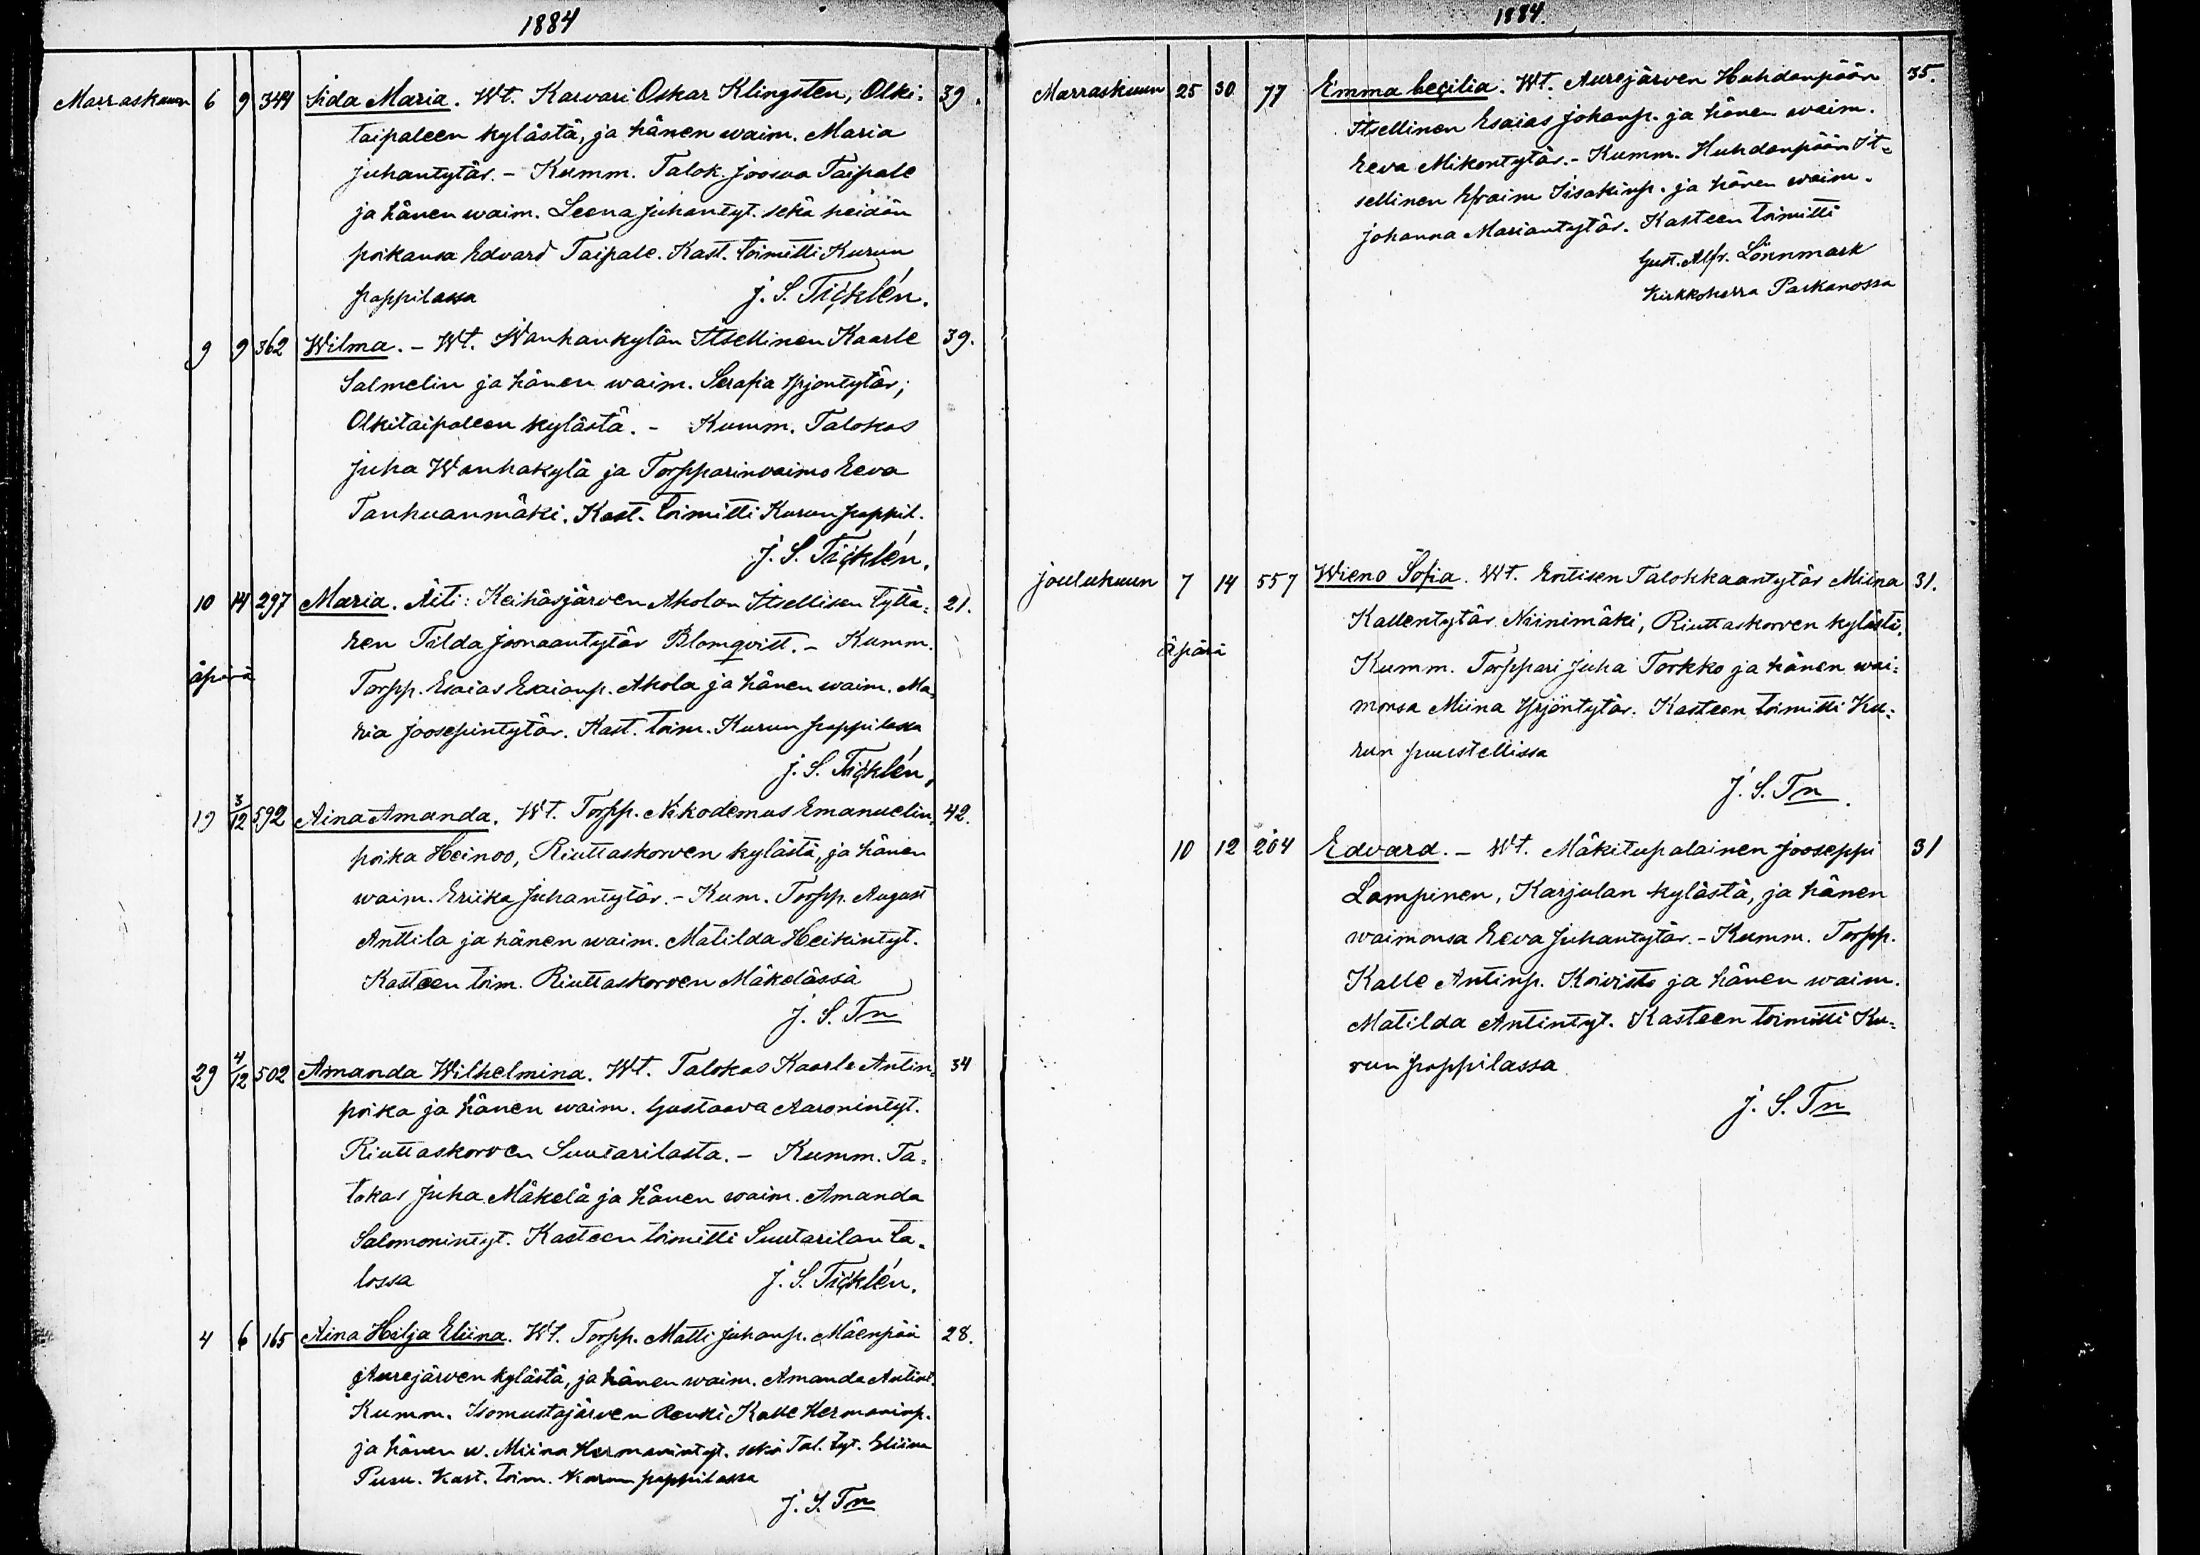 1884
Marraskuun 6 9 344 Iida Maria. Wt. Karvari Oskar Klingsten, Olki= 39.
taipaleen kylästä, ja hänen waim. Maria
Juhantytär. - Kumm. Talok. Joosua Taipale
ja hänen waim. Leena Juhantyt. sekä heidän
poikansa Edvard Taipale. Kast. toimitti Kurun
pappilassa J. S. Ticklén.
9 9 362 Wilma. - Wt. Wanhankylän Itsellinen Kaarle 39.
Salmelin ja hänen waim. Serafia Yrjöntytär;
Olkitaipaleen kylästä. - Kumm. Talokas
Juha Wanhakylä ja Torpparinvaimo Eeva
Tanhuanmäki. Kast. toimitti Kurun pappil.
J. S. Ticklén.
10 14 297 Maria. Äiti: Keihäsjärven Aholan Itsellisen tyttä= 21.
ren Tilda Joonaantytär Blomqvist. - Kumm.
äpärä Torpp. Esaias Esaianp. Ahola ja hänen waim. Ma=
ria Joosepintytär. Kast. toim. Kurun pappilassa
J. S. Ticklén.
19 3/12 592 Aina Amanda. Wt. Torpp. Nikodemus Emanuelin= 42.
poika Heinoo, Riuttaskorven kylästä, ja hänen
waim. Eriika Juhantytär. - Kum. Torpp. August
Anttila ja hänen waim. Matilda Heikintyt.
Kasteen toim. Riuttaskorven Mäkelässä
J. S. Tn
29 4/12 502 Amanda Wilhelmina. Wt. Talokas Kaarle Antin= 34
poika ja hänen waim. Gustaava Aaronintyt.
Riuttaskorven Suutarilasta. - Kumm. Ta=
lokas Juha Mäkelä ja hänen waim. Amanda
Salomonintyt. Kasteen toimitti Suutarilan ta=
lossa J. S. Ticklén.
4 6 165 Aina Hilja Eliina. Wt. Torpp. Matti Juhanp. Mäenpää 28.
Aurejärven kylästä, ja hänen waim. Amanda Antint.
Kumm. Isomustajärven Renki Kalle Hermaninp.
ja hänen w. Miina Hermanintyt. sekä Tal. tyt. Eliina
Pusu. Kast. toim. Kurun pappilassa
J. S. Tn
1884.
Marraskuun 25 30 77 Emma Cecilia. Wt. Aurejärven Huhdanpään 35.
Itsellinen Esaias Johanp. ja hänen waim.
Eeva Mikontytär. - Kumm. Huhdanpään It=
sellinen Efraim Iisakinp. ja hänen waim.
Johanna Mariantytär. Kasteen toimitti
Gust. Alfr. Lönnmark
Kirkkoherra Parkanossa
Joulukuun 7 14 557 Wieno Sofia. Wt. Entisen Talokkaantytär Miina 31.
Kallentytär Niinimäki, Riuttaskorven kylästä.
äpärä Kumm. Torppari Juha Torkko ja hänen wai=
monsa Miina Yrjöntytär. Kasteen toimitti Ku=
run puustellissa
J. S. Tn.
10 12 204 Edvard. - Wt. Mäkitupalainen Jooseppi 31
Lampinen, Karjulan kylästä, ja hänen
waimonsa Eeva Juhantytär. - Kumm. Torpp.
Kalle Antinp. Koivisto ja hänen waim.
Matilda Antintyt. Kasteen toimitti Ku=
run pappilassa
J. S. Tn